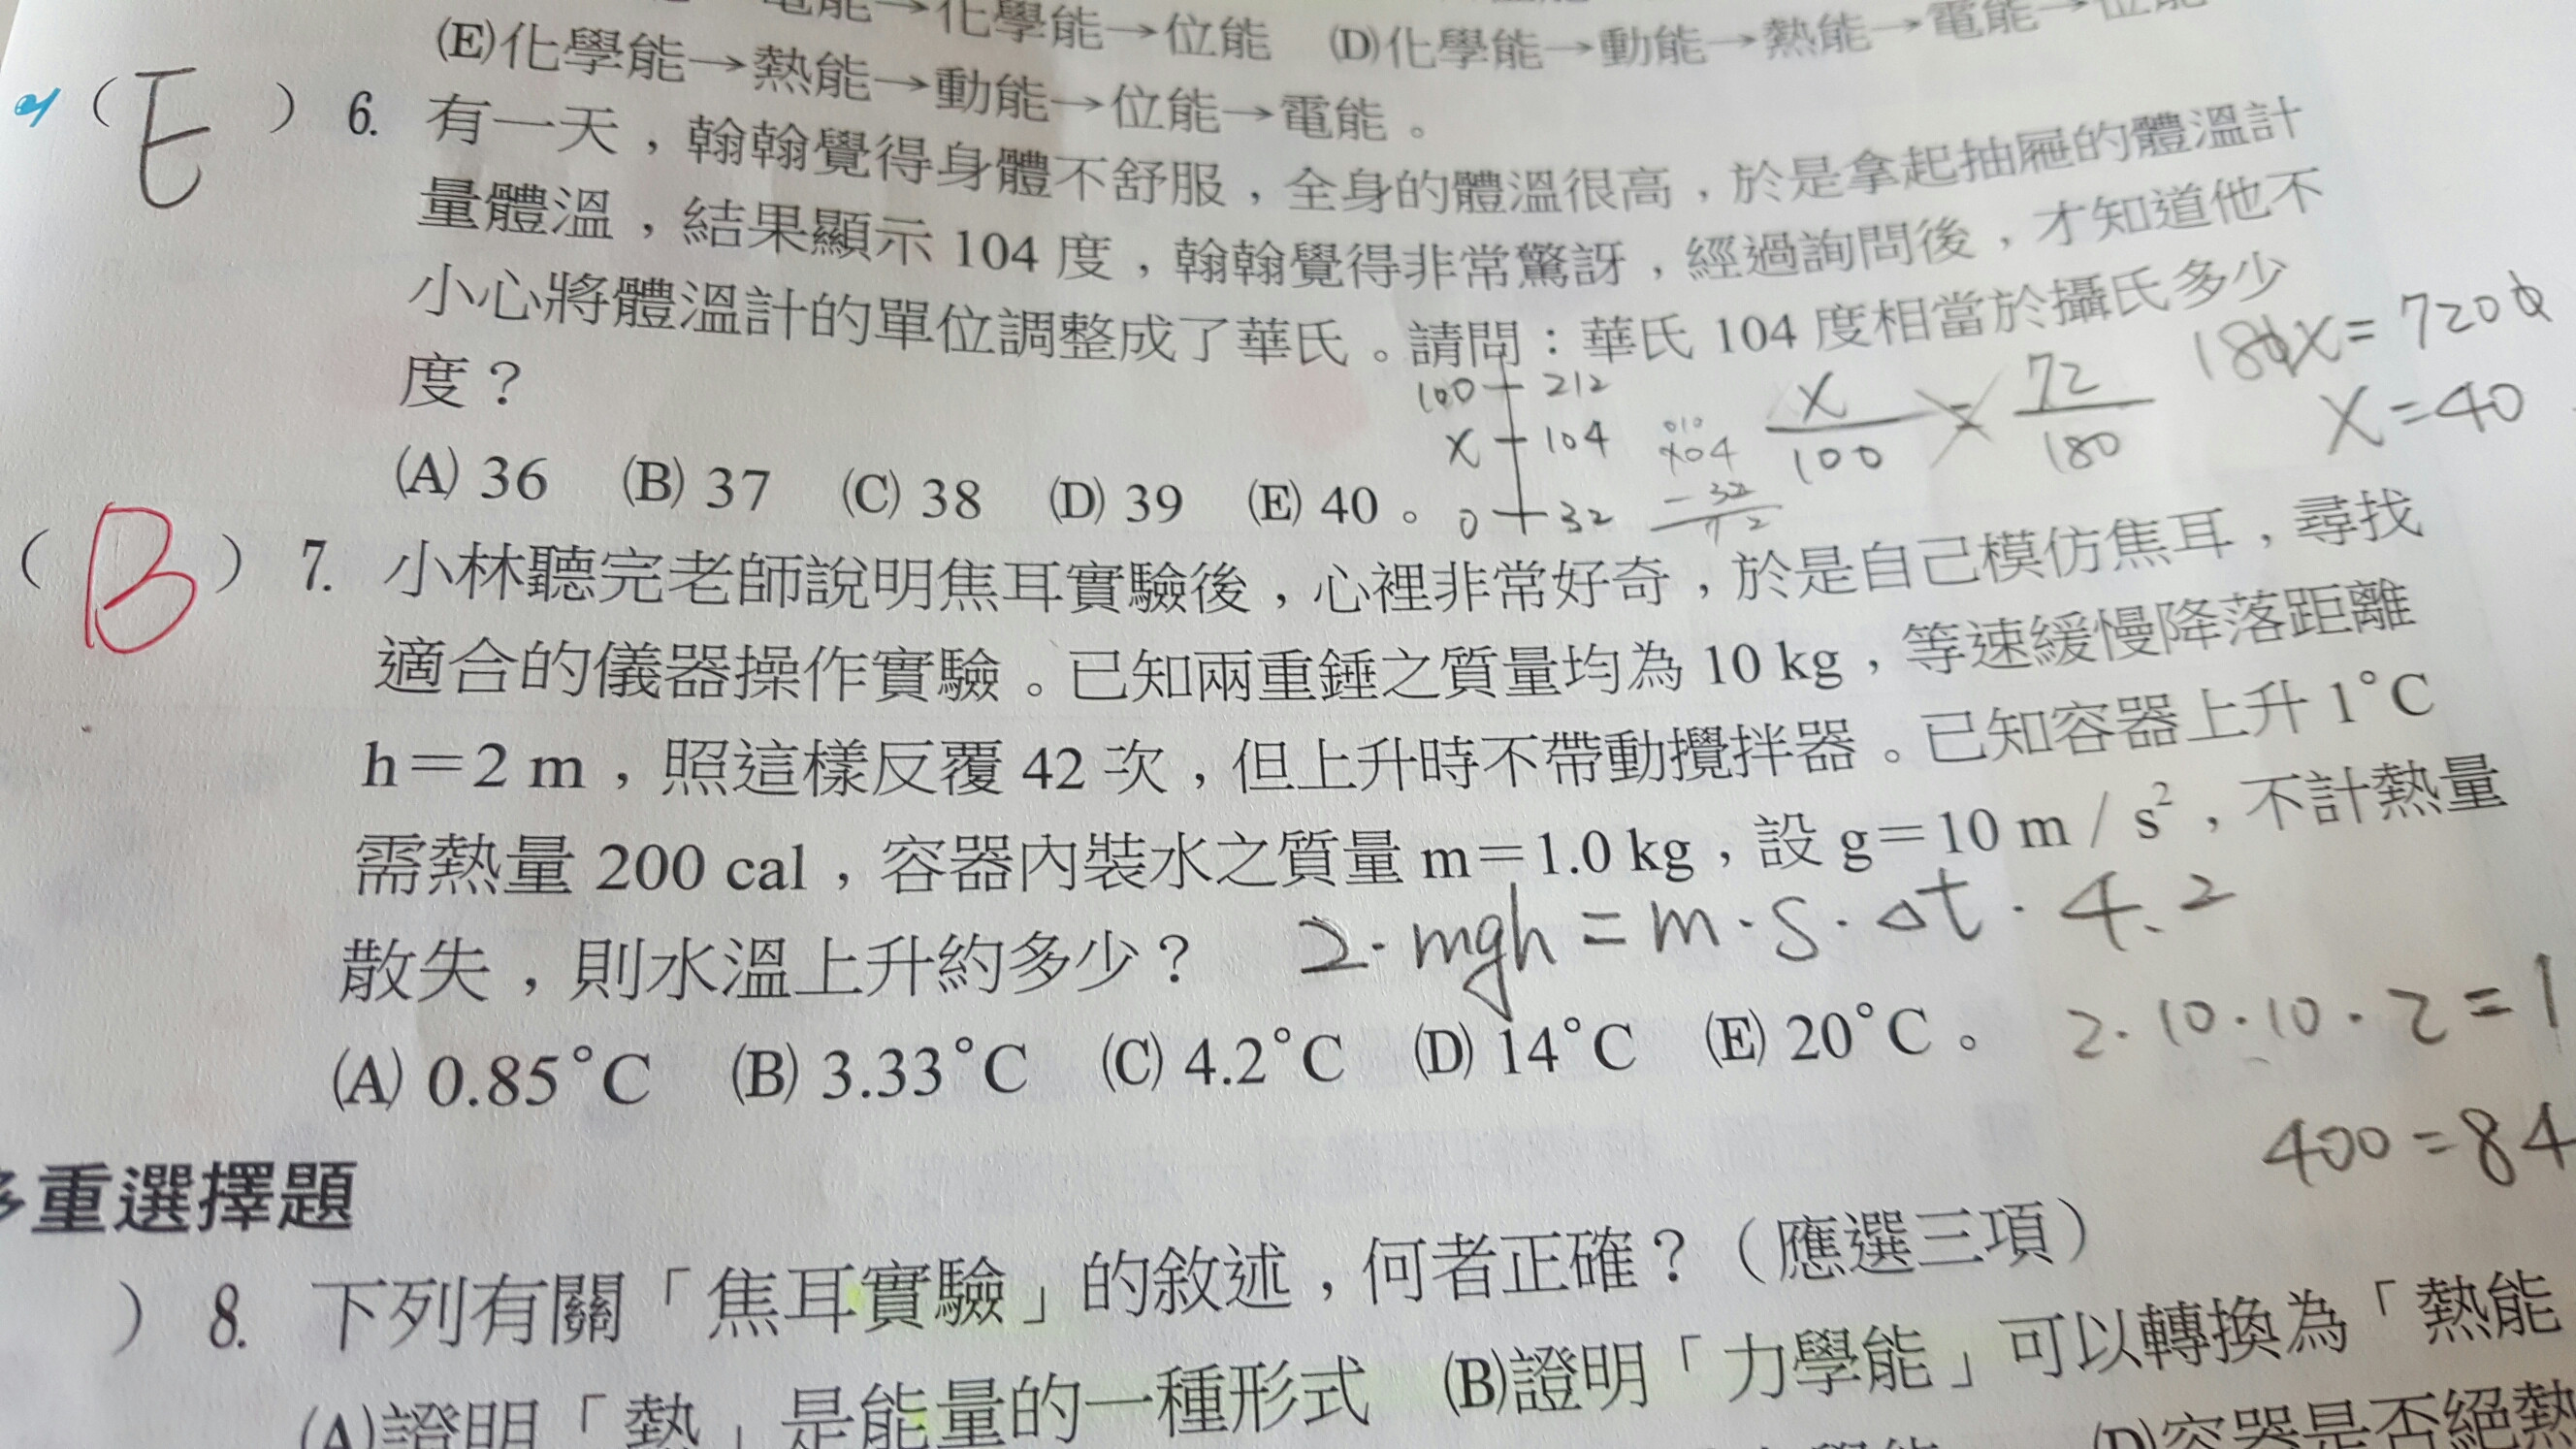 電能→化學能→位能 (D)化學能→動能→熱能→電能→位能
(E)化學能→熱能→動能→位能→電能。
( E ) 6. 有一天，翰翰覺得身體不舒服，全身的體溫很高，於是拿起抽屜的體溫計
量體溫，結果顯示 104 度，翰翰覺得非常驚訝，經過詢問後，才知道他不
小心將體溫計的單位調整成了華氏。請問：華氏 104 度相當於攝氏多少
度？
100 212
x 104
0 32
104
-32
72
x/100 = 72/180
180x = 7200
x = 40
(A) 36 (B) 37 (C) 38 (D) 39 (E) 40。
( B ) 7. 小林聽完老師說明焦耳實驗後，心裡非常好奇，於是自己模仿焦耳，尋找
適合的儀器操作實驗。已知兩重錘之質量均為 10 kg，等速緩慢降落距離
h＝2 m，照這樣反覆 42 次，但上升時不帶動攪拌器。已知容器上升 1°C
需熱量 200 cal，容器內裝水之質量 m＝1.0 kg，設 g＝10 m / s²，不計熱量
散失，則水溫上升約多少？
2·mgh = m·s·Δt·4.2
(A) 0.85°C (B) 3.33°C (C) 4.2°C (D) 14°C (E) 20°C。
2·10·10·2 = 1
400 = 84
多重選擇題
) 8. 下列有關「焦耳實驗」的敘述，何者正確？（應選三項）
(A)證明「熱」是能量的一種形式 (B)證明「力學能」可以轉換為「熱能
(D)容器是否絕熱